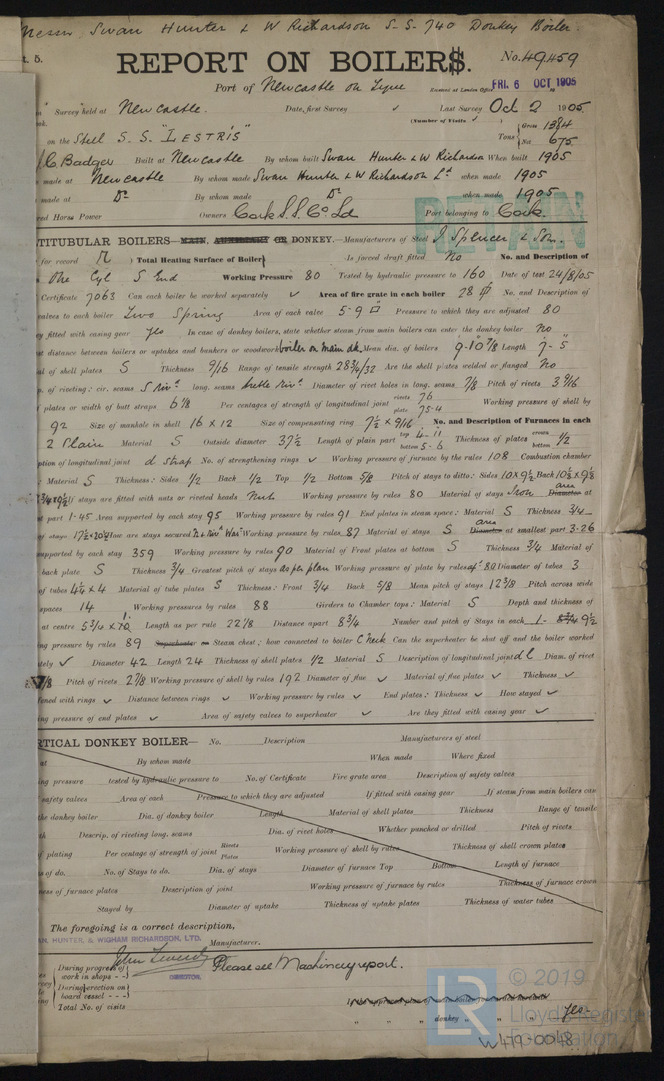 Messrs Swan Hunter & W Richardson S-S-740 Donkey Boiler.
t. 5.
REPORT ON BOILERS.
No. 49459
Port of Newcastle on Tyne
Received at London Office
FRI. 6 OCT 1905
Survey held at Newcastle. Date, first Survey ✓ Last Survey Oct 2 1905
(Number of Visits ✓ )
on the Steel S. S. "LESTRIS"
Tons { Gross 1384
Net 675
J. C. Badger Built at Newcastle By whom built Swan Hunter & W Richardson When built 1905
made at Newcastle By whom made Swan Hunter & W Richardson Ld when made 1905
made at Do By whom made Do when made 1905
Horse Power Owners Cork S. S. Co Ld Port belonging to Cork.
RETAIN
TITUBULAR BOILERS MAIN, AUXILIARY OR DONKEY.—Manufacturers of Steel J Spencer & Son.
for record ) Total Heating Surface of Boiler Is forced draft fitted No No. and Description of
One Cyl S End Working Pressure 80 Tested by hydraulic pressure to 160 Date of test 24/8/05
Certificate 7063 Can each boiler be worked separately ✓ Area of fire grate in each boiler 28 No. and Description of
valves to each boiler Two Spring Area of each valve 5.9 Pressure to which they are adjusted 80
fitted with casing gear yes In case of donkey boilers, state whether steam from main boilers can enter the donkey boiler No
distance between boilers or uptakes and bunkers or woodwork boiler on main dk. Mean dia. of boilers 9-10 7/8 Length 9-5"
of shell plates S Thickness 9/16 Range of tensile strength 28 3/4/32 Are the shell plates welded or flanged No
of riveting: cir. seams S rivd. long. seams treble rivd. Diameter of rivet holes in long. seams 7/8 Pitch of rivets 3 9/16
plates or width of butt straps 6 7/8 Per centages of strength of longitudinal joint rivets 76 plate 75.4 Working pressure of shell by
92 Size of manhole in shell 16 x 12 Size of compensating ring 7 1/2 x 9/16 No. and Description of Furnaces in each
2 Plain Material S Outside diameter 37 1/2 Length of plain part top 4-11 bottom 5-6 Thickness of plates crown bottom 1/2
of longitudinal joint d strap No. of strengthening rings ✓ Working pressure of furnace by the rules 108 Combustion chamber
Material S Thickness: Sides 1/2 Back 1/2 Top 1/2 Bottom 5/8 Pitch of stays to ditto: Sides 10x9 1/2 Back 10 1/2 x 9 1/2
If stays are fitted with nuts or riveted heads Nuts Working pressure by rules 80 Material of stays Iron Diameter area at
part 1.45 Area supported by each stay 95 Working pressure by rules 91 End plates in steam space: Material S Thickness 3/4
of stays How are stays secured Working pressure by rules 87 Material of stays S Diameter area at smallest part 3.26
supported by each stay 359 Working pressure by rules 90 Material of Front plates at bottom S Thickness 3/4 Material of
back plate S Thickness 3/4 Greatest pitch of stays as per plan Working pressure of plate by rules 80 Diameter of tubes 3
of tubes 4 1/4 x 4 Material of tube plates S Thickness: Front 3/4 Back 5/8 Mean pitch of stays 12 5/8 Pitch across wide
spaces 14 Working pressures by rules 88 Girders to Chamber tops: Material S Depth and thickness of
at centre 5 3/4 x Length as per rule 22 7/8 Distance apart 8 3/4 Number and pitch of Stays in each 1- 9 1/2
pressure by rules 89 Superheater or Steam chest; how connected to boiler C Neck Can the superheater be shut off and the boiler worked
✓ Diameter 42 Length 24 Thickness of shell plates 1/2 Material S Description of longitudinal joint d L Diam. of rivet
7/8 Pitch of rivets 2 7/8 Working pressure of shell by rules 192 Diameter of flue ✓ Material of flue plates ✓ Thickness ✓
with rings ✓ Distance between rings ✓ Working pressure by rules ✓ End plates: Thickness ✓ How stayed ✓
pressure of end plates ✓ Area of safety valves to superheater ✓ Are they fitted with easing gear ✓
RTICAL DONKEY BOILER— No. Description Manufacturers of steel
at By whom made When made Where fixed
pressure tested by hydraulic pressure to No. of Certificate Fire grate area Description of safety valves
safety valves Area of each Pressure to which they are adjusted If fitted with easing gear If steam from main boilers can
the donkey boiler Dia. of donkey boiler Length Material of shell plates Thickness Range of tensile
Descrip. of riveting long. seams Dia. of rivet holes Whether punched or drilled Pitch of rivets
of plating Per centage of strength of joint Rivets Plates Working pressure of shell by rules Thickness of shell crown plates
of do. No. of Stays to do. Dia. of stays Diameter of furnace Top Bottom Length of furnace
of furnace plates Description of joint Working pressure of furnace by rules Thickness of furnace crown
Stayed by Diameter of uptake Thickness of uptake plates Thickness of water tubes
The foregoing is a correct description,
AN, HUNTER, & WIGHAM RICHARDSON, LTD. Manufacturer.
John Tweedy
DIRECTOR.
During progress of work in shops - -
During erection on board vessel - - -
Total No. of visits
Please see Machinery report.
" " donkey " " " yes
© 2019
LR
Lloyd's Register
Foundation
W479-0048